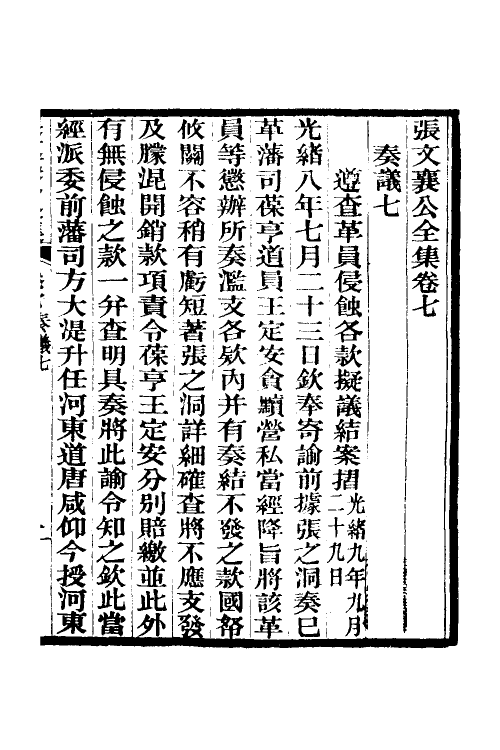 張文襄公全集卷七
奏議七
遵查革員侵蝕各款擬議結案摺光緒九年九月二十九日
光緒八年七月二十三日欽奉寄諭前據張之洞奏已
革藩司葆亨道員王定安貪黷營私當經降旨將該革
員等懲辦所奏濫支各欵內并有奏結不發之款國帑
攸關不容稍有虧短著張之洞詳細確查將不應支發
及朦混開銷款項責令葆亨王定安分別賠繳並此外
有無侵蝕之款一并查明具奏將此諭令知之欽此當
經派委前藩司方大湜升任河東道唐咸仰今授河東
奏議七